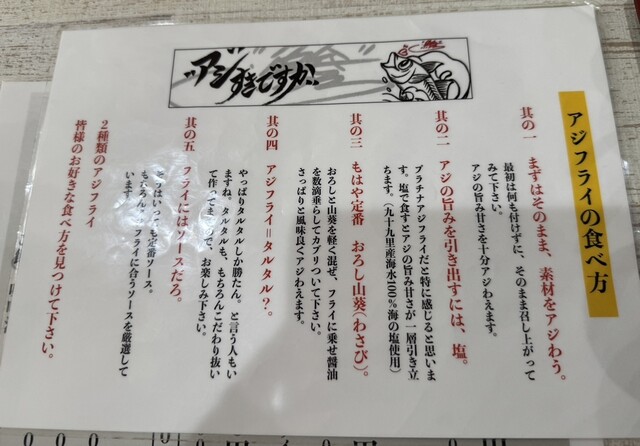 アジフライの食べ方
"アジ"すきですか、
其の一 まずはそのまま、素材をアジわう。
最初は何も付けずに、そのまま召し上がって
みて下さい。
アジの旨み甘さを十分アジわえます。
其の二 アジの旨みを引き出すには、塩。
プラチナアジフライだと特に感じると思いま
す。塩で食すとアジの旨み甘さが一層引き立
ちます。(九十九里産海水100%海の塩使用)
其の三 もはや定番 おろし山葵(わさび)。
おろしと山葵を軽く混ぜ、フライに乗せ醤油
を数滴垂らしてカブりついて下さい。
さっぱりと風味良くアジわえます。
其の四 アジフライ=タルタル?。
やっぱりタルタルしか勝たん。と言う人もい
ますね。タルタルも、もちろんこだわり抜い
て作ってますので、お楽しみ下さい。
其の五 フライにはソースだろ。
いっても定番ソース。
もちろん。フライに合うソースを厳選して
います。
2種類のアジフライ
皆様のお好きな食べ方を見つけて下さい。